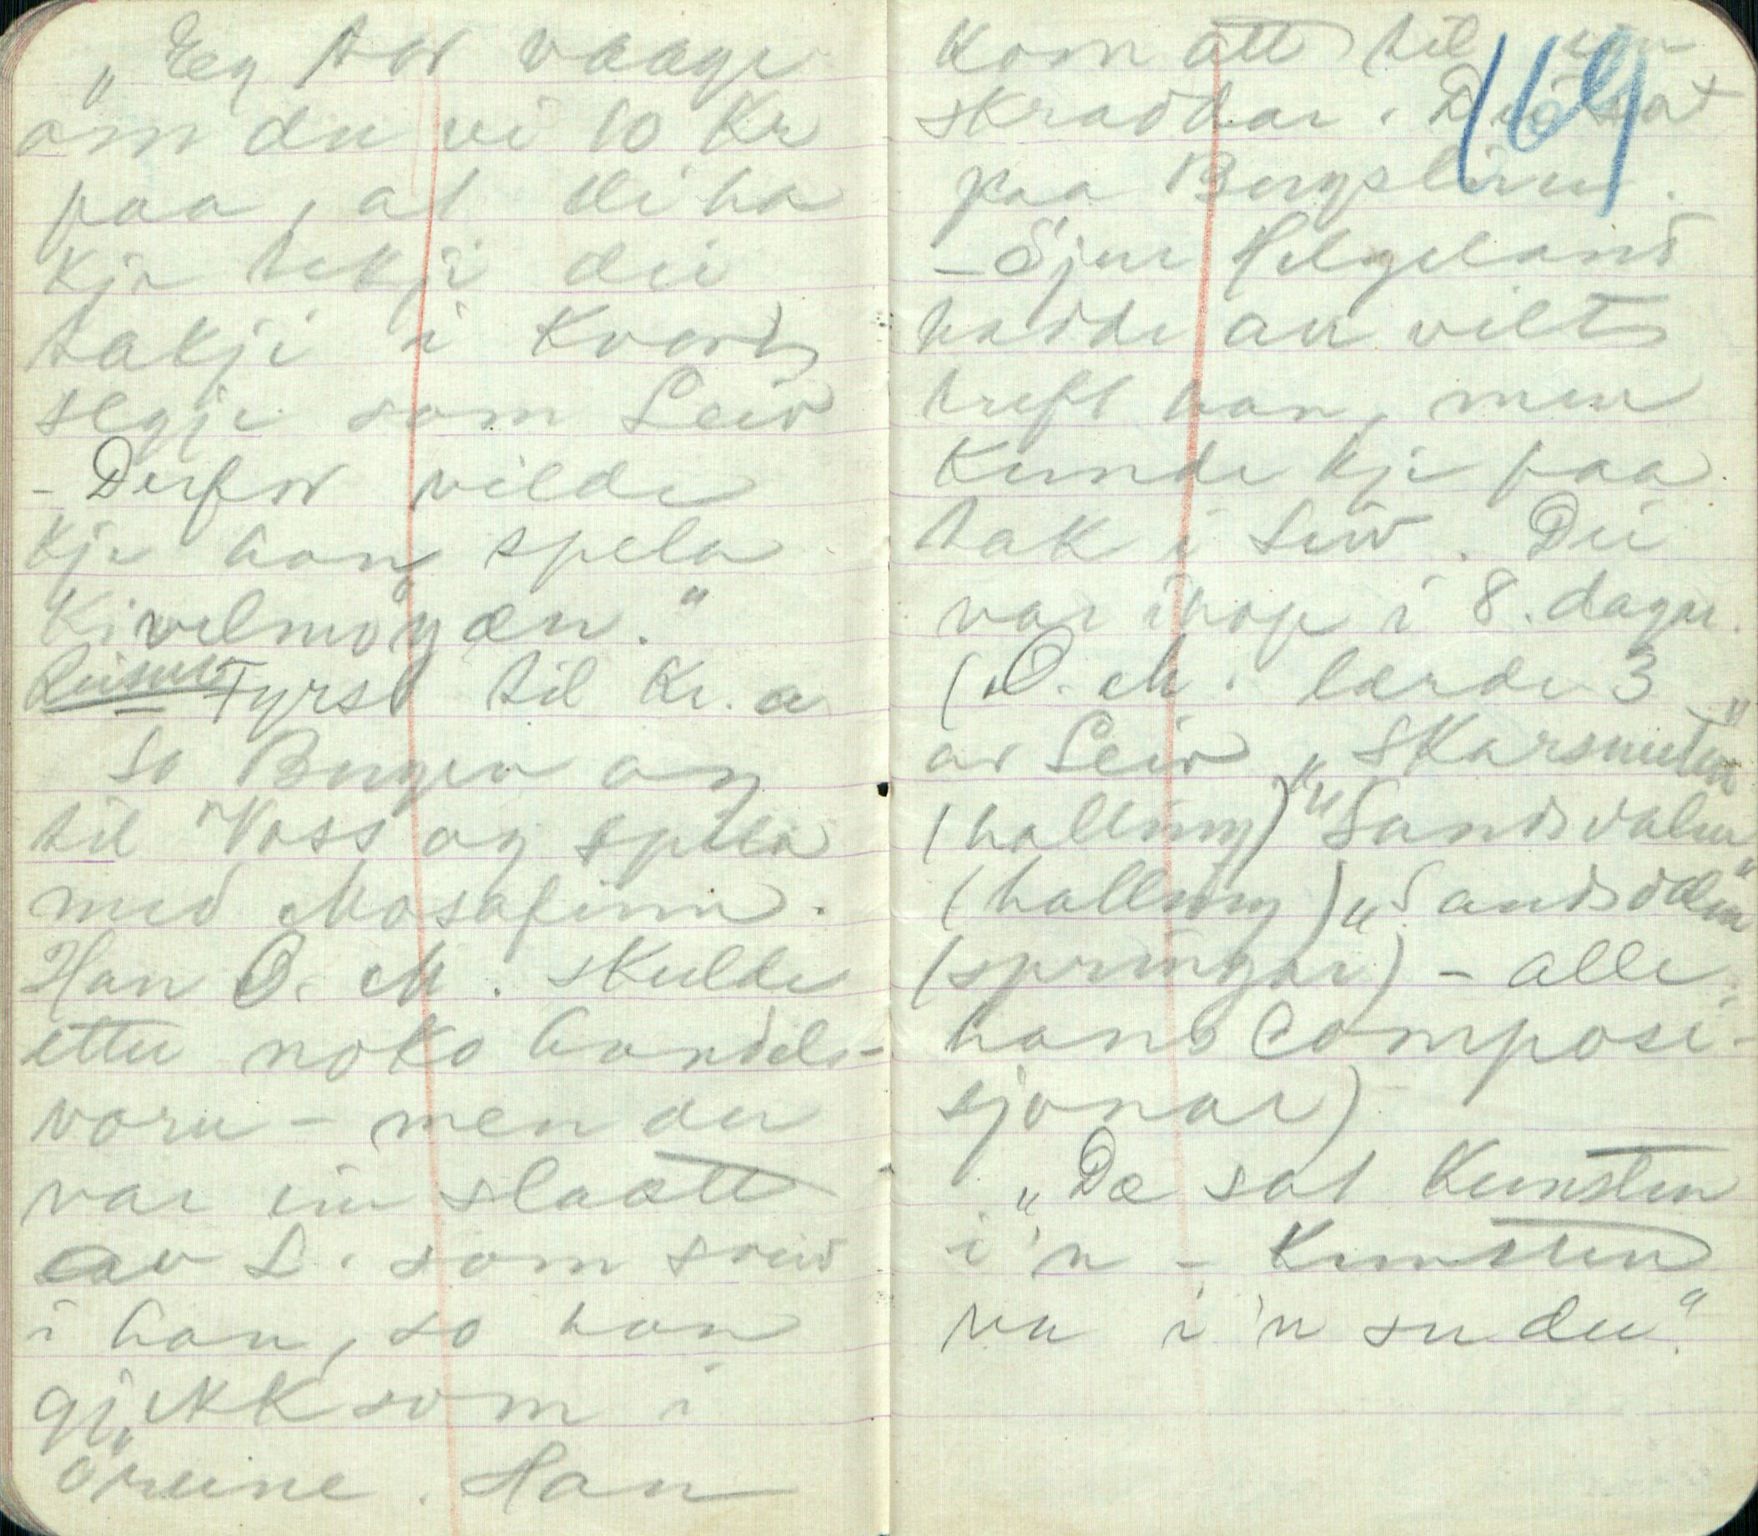 „Eg tor vaage
om du vi 10 Kr
paa, at di ha
kje tekje dei
takji i Kvart
segje som Leiv
- Derfor vilde
kje han spela
Kivelmöyæn."
Reisute Fyrst til Kr. a
so Bergen og
til Voss og spela
med Mosafinn.
Han O. M. skulde
etter noko handels-
varer - men der
var ein slaatt
av L. som sveiv
i han, so han
gjekk som i
öreine. Han
kom att til ein
skraddar. D
paa Bergslien.
- Sjur Helgeland
hadde an vilt
treft han, men
kunde kje faa
tak i Leiv. Dei
var ihop i 8. dagar.
(O. M. lærde 3
av Leiv „Skarsnuten"
(halling) „Sandsdalen"
(halling) „Sandsdalen"
(springar) - alle
hans Composi-
sjonar)
„Dæ sat Kunsten
i 'n - Kunsten
va i 'n su du"
164